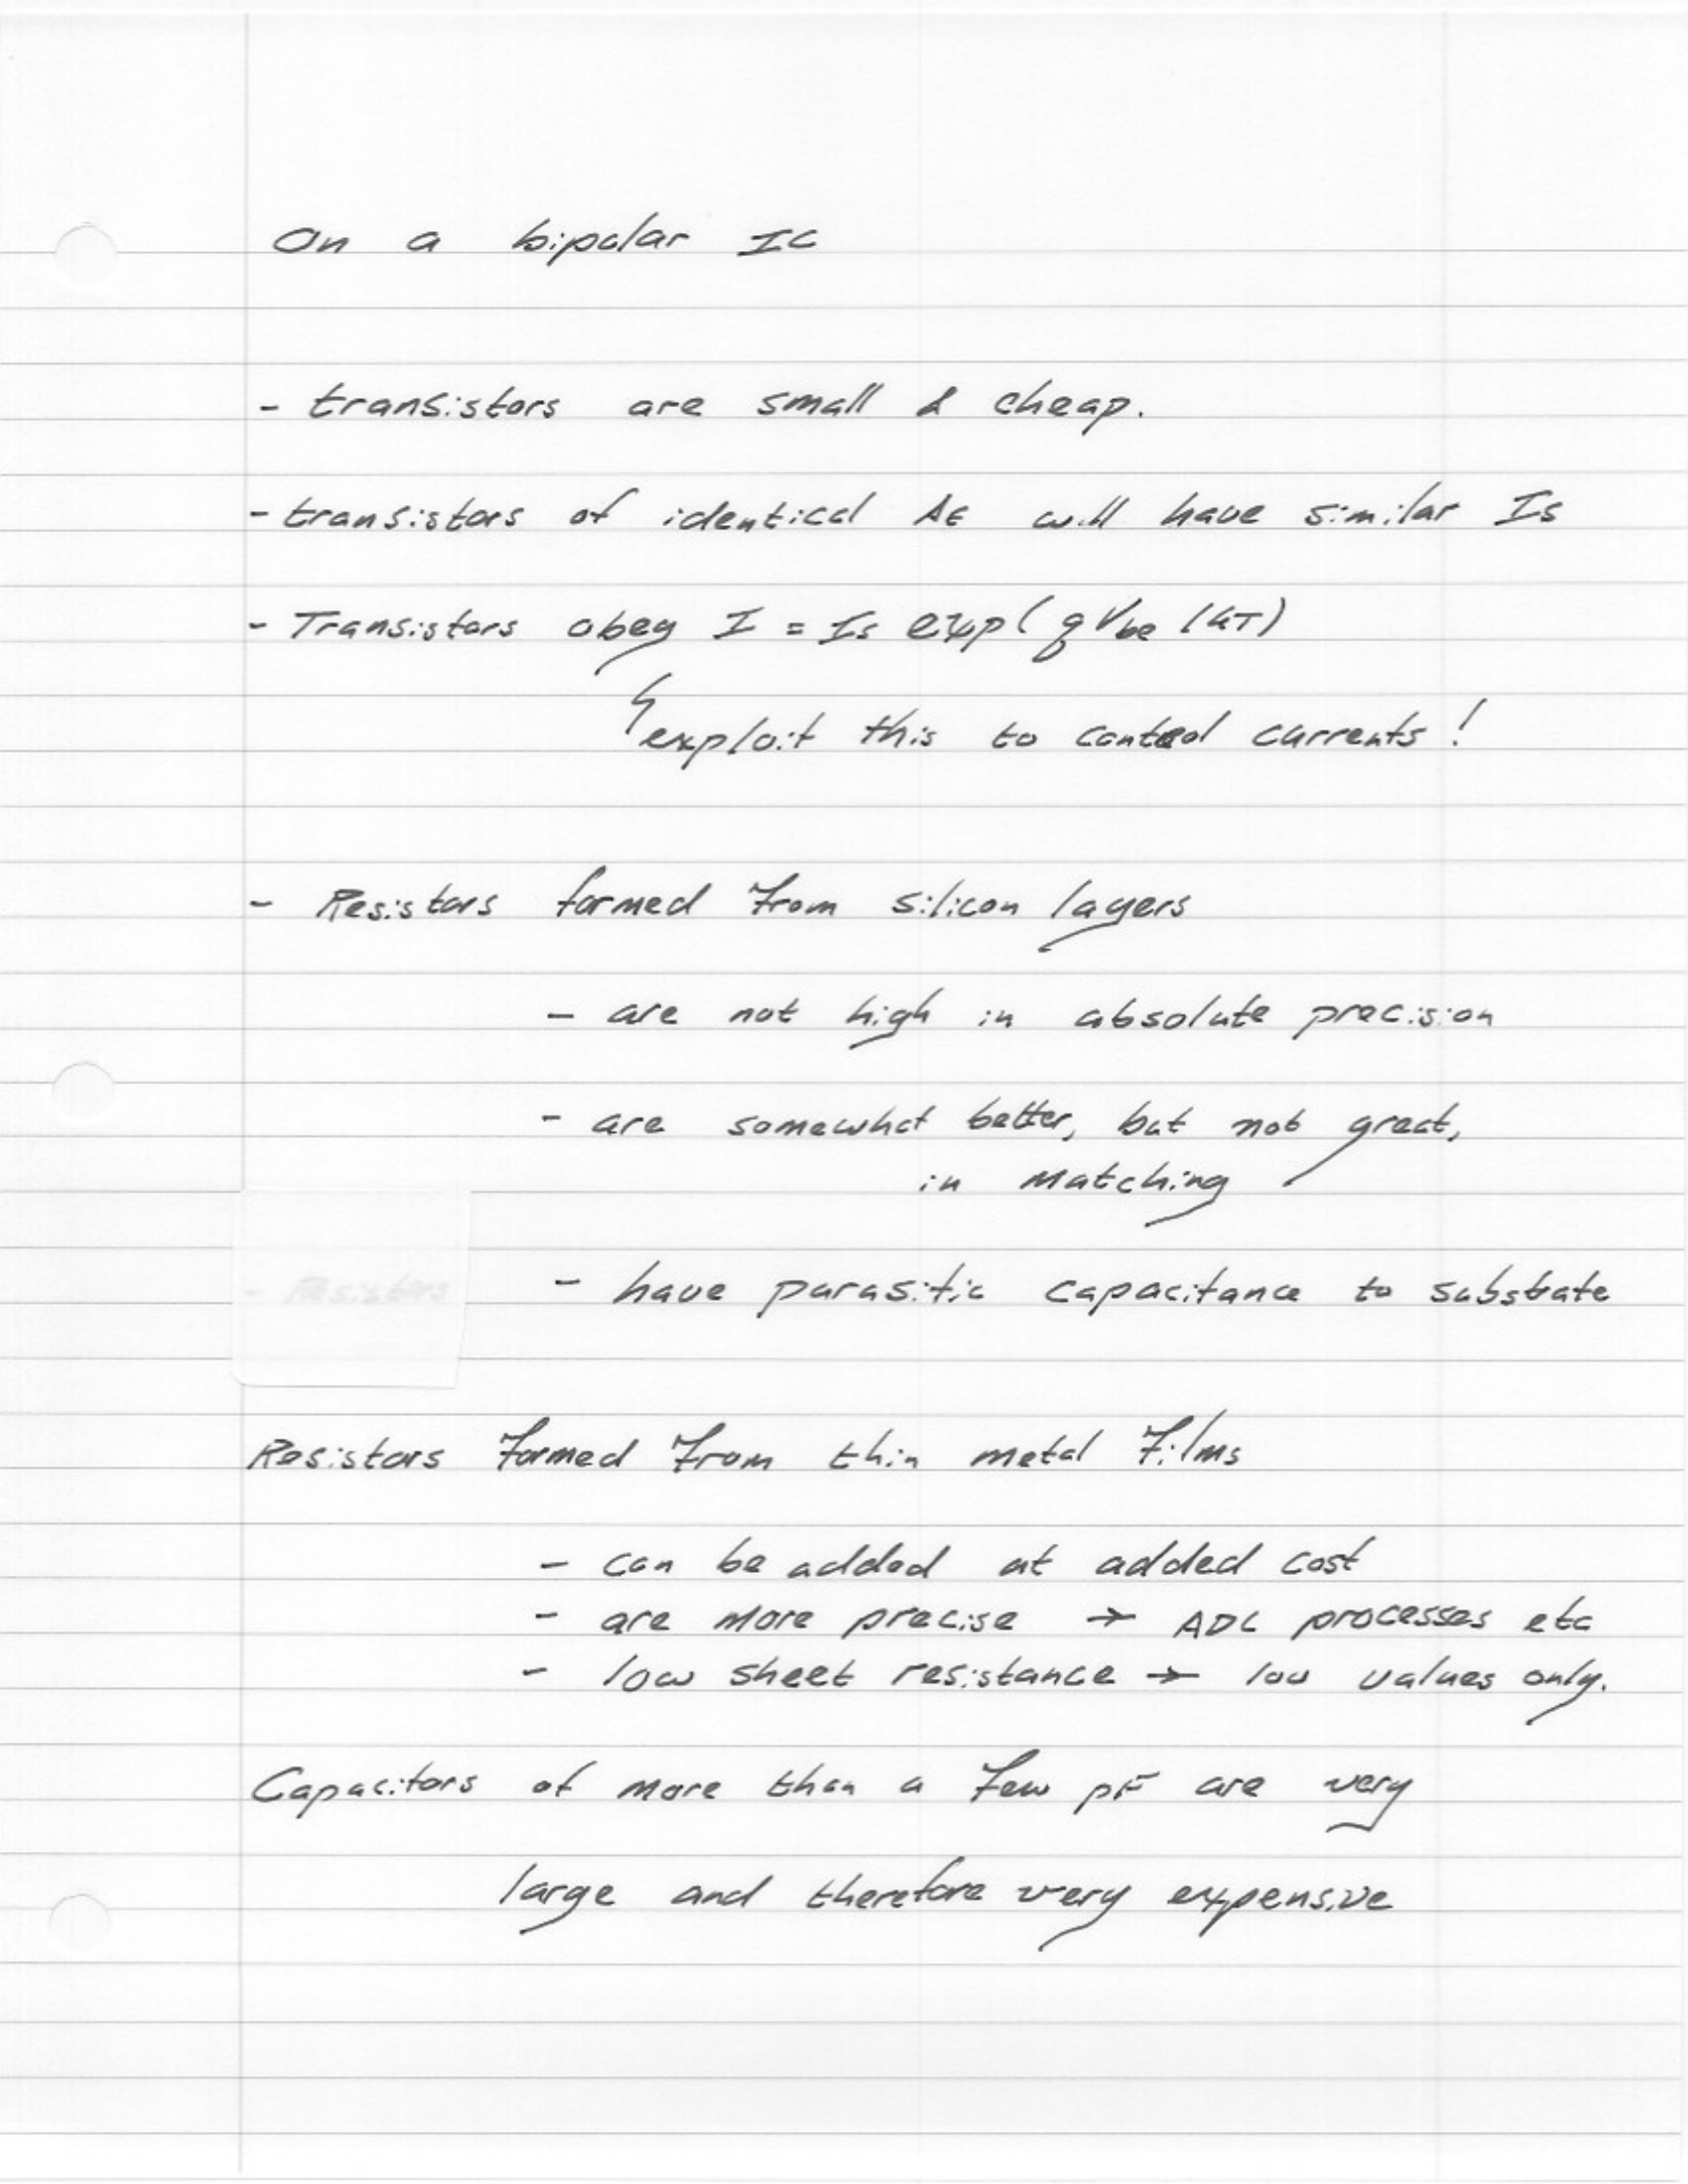 On a bipolar IC
- transistors are small & cheap.
- transistors of identical AE will have similar Is
- Transistors obey I = Is exp(qVbe/kT)
exploit this to control currents!
- Resistors formed from silicon layers
- are not high in absolute precision
- are somewhat better, but not great,
in matching
- Resistors - have parasitic capacitance to substrate
Resistors formed from thin metal films
- can be added at added cost
- are more precise → ADC processes etc
- low sheet resistance → low values only.
Capacitors of more than a few pF are very
large and therefore very expensive